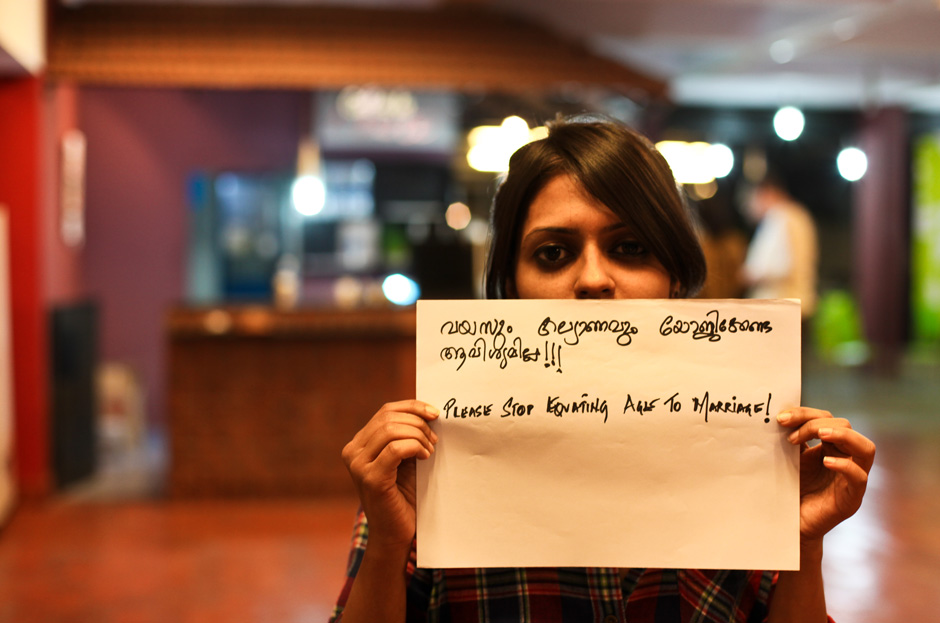 വയസും കല്യാണവും യോജിക്കേണ്ട
ആവിശ്യമില്ല!!!
PLEASE STOP EQUATING AGE TO MARRIAGE!